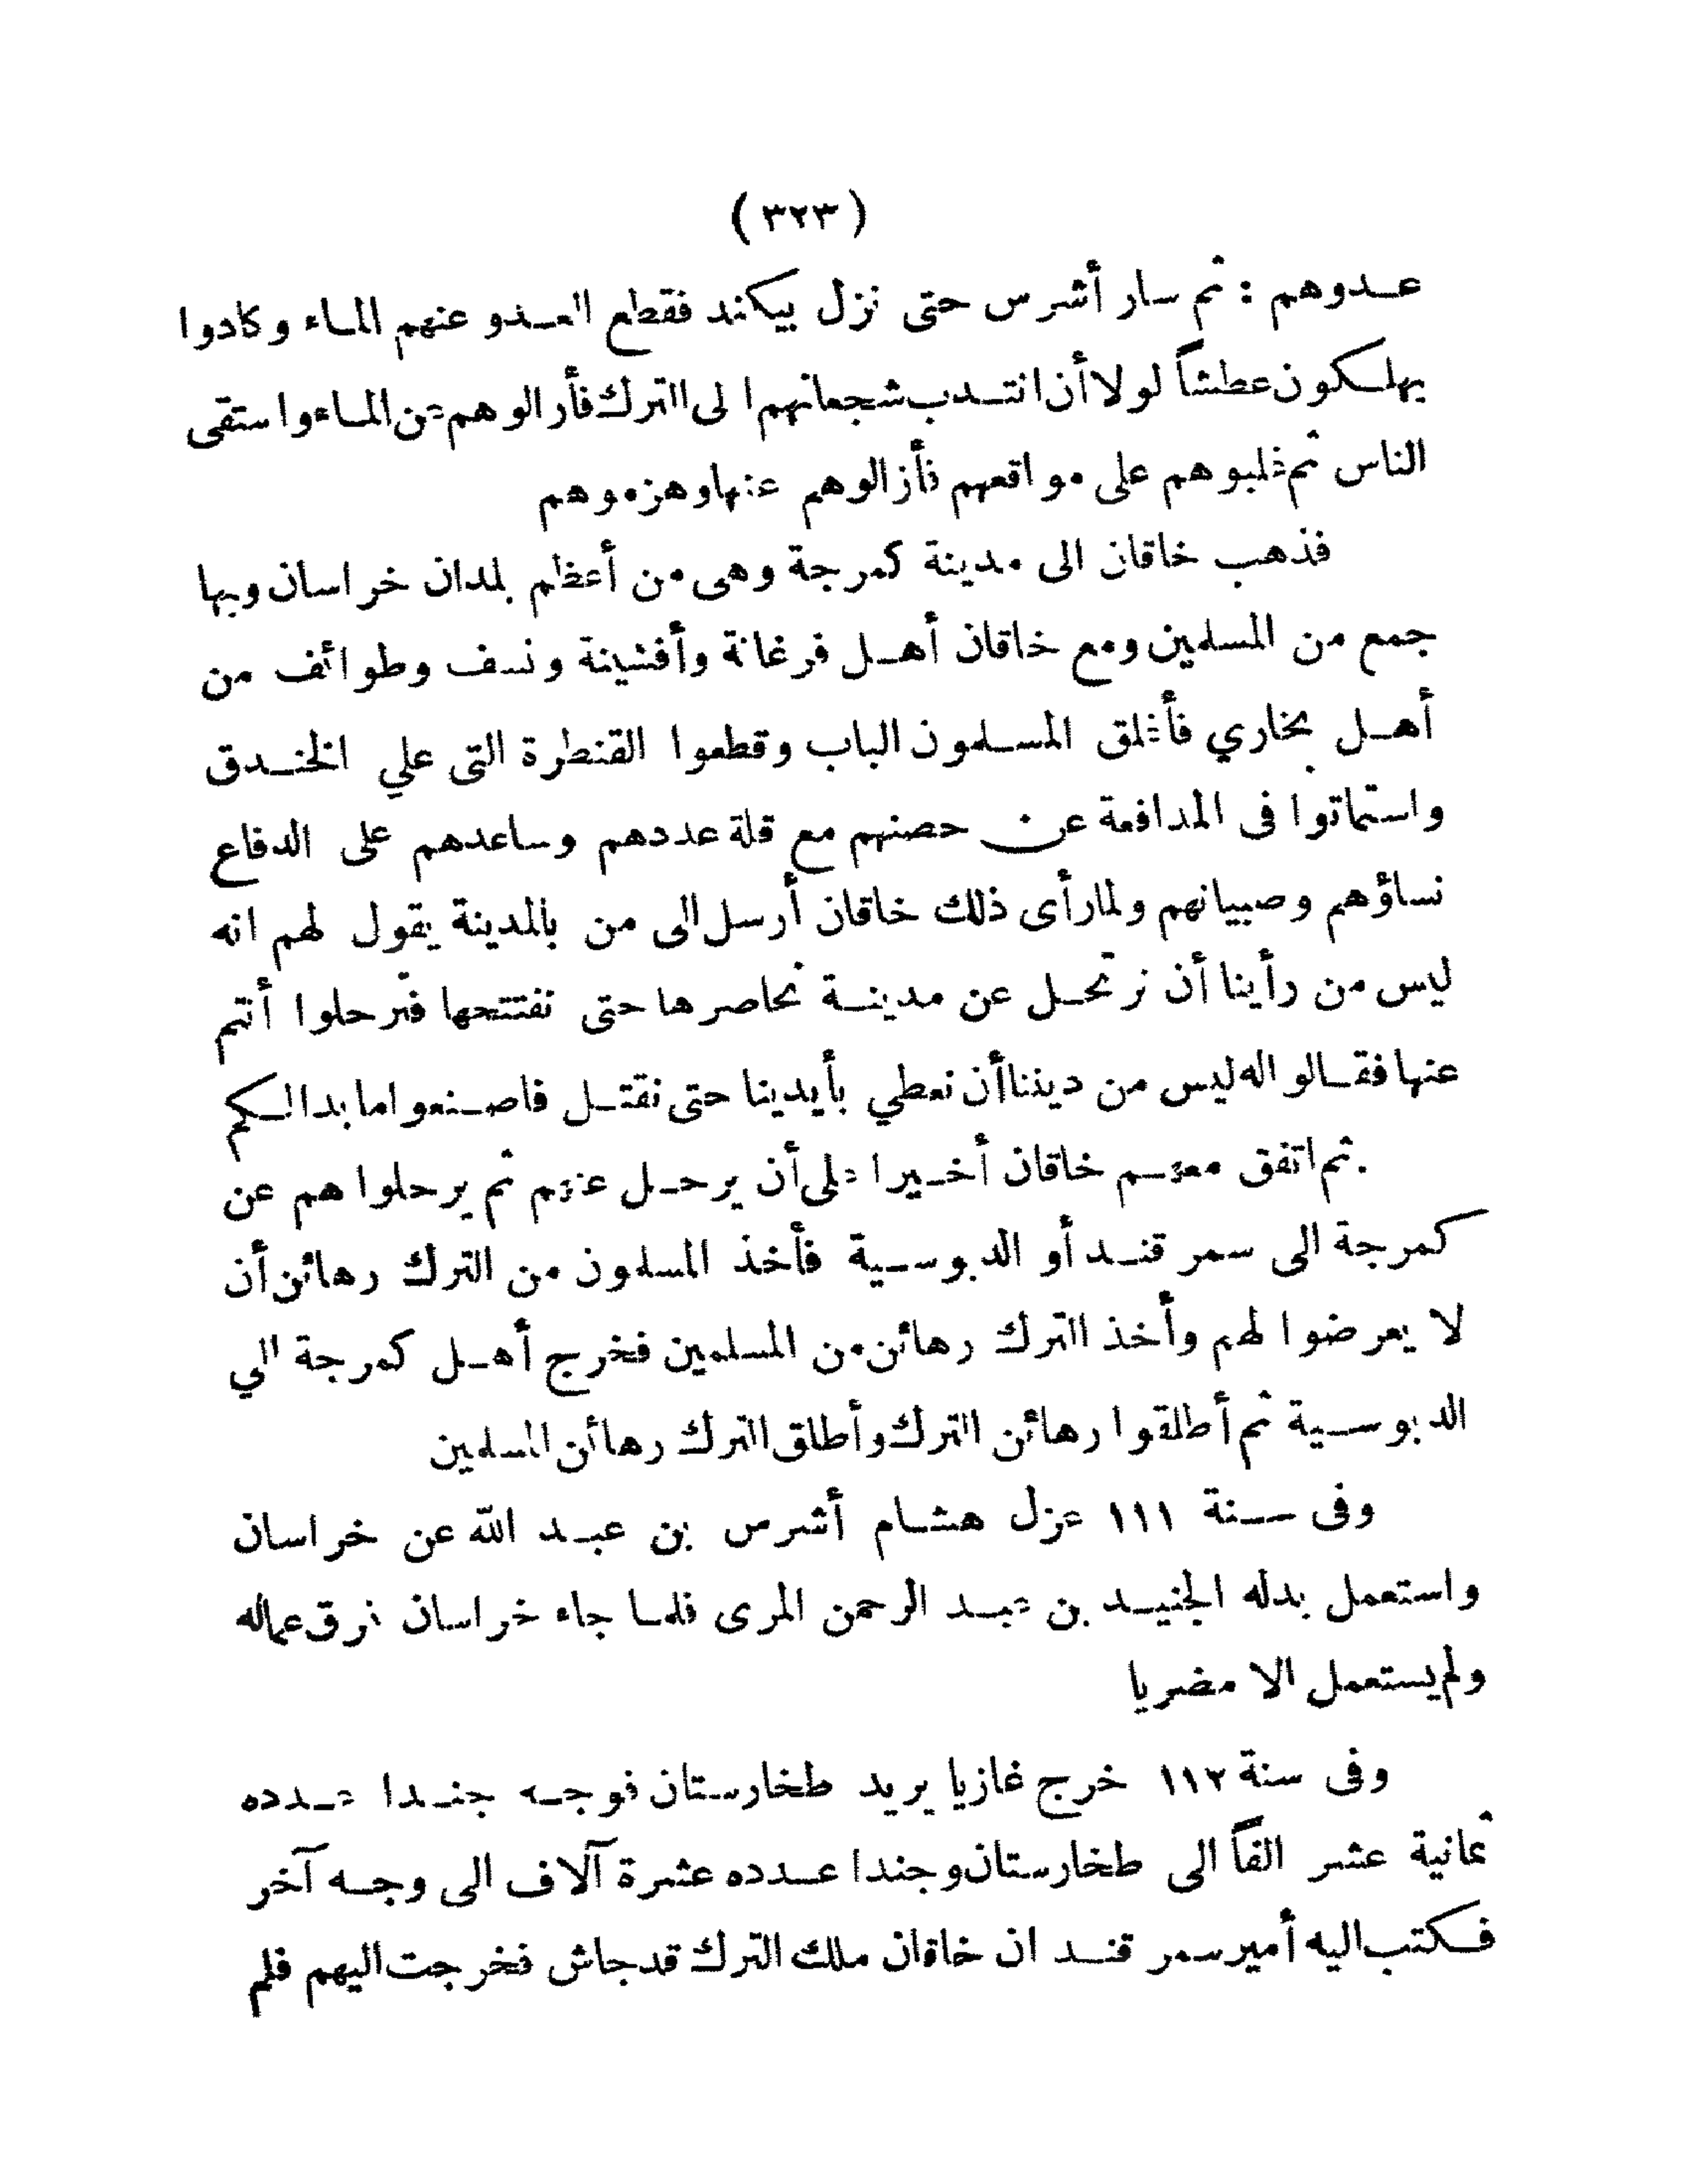 ( ٣٢٣ )
عدوهم : ثم سار أشرس حتى نزل بيكند فقطع العدو عنهم الماء وكادوا
يهلكون عطشاً لولا أن انتدب شجعانهم الى الترك فأرالوهم عن الماء واستقى
الناس ثم غلبوهم على مواقعهم فأزالوهم عنها وهزموهم
فذهب خاقان الى مدينة كمرجة وهى من أعظم بلدان خراسان وبها
جمع من المسلمين ومع خاقان أهل فرغانة وأفشينة ونسف وطوائف من
أهل بخاري فأغلق المسلمون الباب وقطعوا القنطرة التى علي الخندق
واستماتوا فى المدافعة عن حصنهم مع قلة عددهم وساعدهم على الدفاع
نساؤهم وصبيانهم ولما رأى ذلك خاقان أرسل الى من بالمدينة يقول لهم انه
ليس من رأينا أن نرتحل عن مدينة نحاصرها حتى نفتتحها فترحلوا أنتم
عنها فقالوا له ليس من ديننا أن نعطي بأيدينا حتى نقتل فاصنعوا ما بدا لكم
ثم اتفق معهم خاقان أخيرا على أن يرحل عنهم ثم يرحلوا هم عن
كمرجة الى سمرقند أو الدبوسية فأخذ المسلمون من الترك رهائن أن
لا يعرضوا لهم وأخذ الترك رهائن من المسلمين فخرج أهل كمرجة الي
الدبوسية ثم أطلقوا رهائن الترك وأطلق الترك رهائن المسلمين
وفى سنة ١١١ عزل هشام أشرس بن عبد الله عن خراسان
واستعمل بدله الجنيد بن عبد الرحمن المرى فلما جاء خراسان فرق عماله
ولم يستعمل الا مضريا
وفى سنة ١١٢ خرج غازيا يريد طخارستان فوجه جندا عدده
ثمانية عشر الفاً الى طخارستان وجندا عدده عشرة آلاف الى وجه آخر
فكتب اليه أمير سمرقند ان خاقان ملك الترك قد جاش فخرجت اليهم فلم